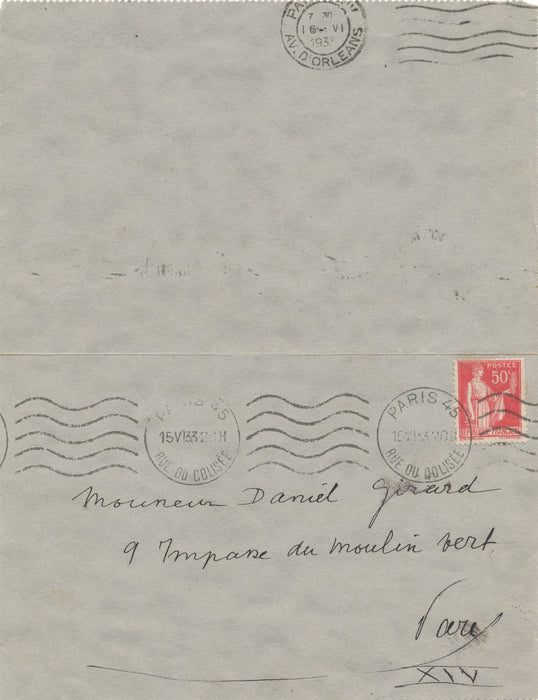 7 30
16 - VI
AV. D'ORLEANS
POSTES
50c
PARIS 45
15 VI 33 20H
RUE DU COLISÉE
PARIS 45
15 VI 33 20H
RUE DU COLISÉE
Monsieur Daniel Girard
9 Impasse du Moulin Vert
Paris
XIV